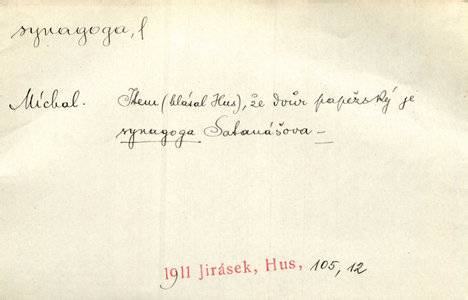 synagoga, f
Michal. Item (hlásal Hus), že dvůr papežský je
synagoga Satanášova —
1911 Jirásek, Hus, 105, 12